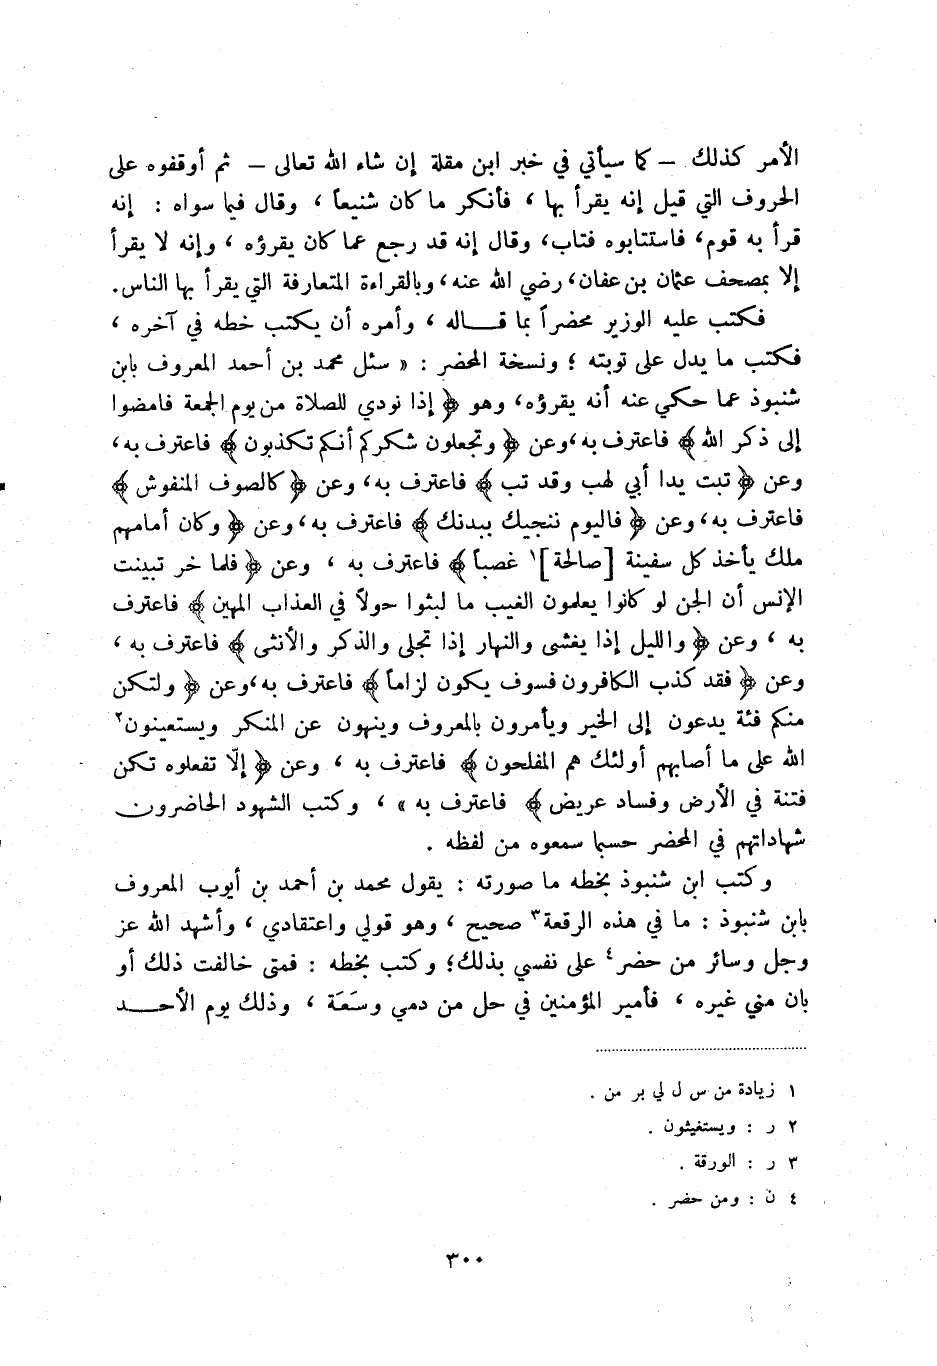 الأمر كذلك – كما سيأتي في خبر ابن مقلة إن شاء الله تعالى – ثم أوقفوه على
الحروف التي قيل إنه يقرأ بها ، فأنكر ما كان شنيعاً ، وقال فيما سواه : إنه
قرأ به قوم، فاستتابوه فتاب، وقال إنه قد رجع عما كان يقرؤه ، وإنه لا يقرأ
إلا بمصحف عثمان بن عفان، رضي الله عنه، وبالقراءة المتعارفة التي يقرأ بها الناس.
فكتب عليه الوزير محضراً بما قـــاله ، وأمره أن يكتب خطه في آخره ،
فكتب ما يدل على توبته ؛ ونسخة المحضر : « سئل محمد بن أحمد المعروف بابن
شنبوذ عما حكي عنه أنه يقرؤه، وهو ﴿ إذا نودي للصلاة من يوم الجمعة فامضوا
إلى ذكر الله ﴾ فاعترف به ،وعن ﴿ وتجعلون شكركم أنكم تكذبون ﴾ فاعترف به،
وعن ﴿ تبت يدا أبي لهب وقد تب ﴾ فاعترف به، وعن ﴿ كالصوف المنفوش ﴾
فاعترف به، وعن ﴿ فاليوم ننجيك ببدنك ﴾ فاعترف به، وعن ﴿ وكان أمامهم
ملك يأخذ كل سفينة [صالحة]١ غصباً ﴾ فاعترف به ، وعن ﴿ فلما خر تبينت
الإنس أن الجن لو كانوا يعلمون الغيب ما لبثوا حولاً في العذاب المهين ﴾ فاعترف
به ، وعن ﴿ والليل إذا يغشى والنهار إذا تجلى والذكر والأنثى ﴾ فاعترف به ،
وعن ﴿ فقد كذب الكافرون فسوف يكون لزاماً ﴾ فاعترف به،وعن ﴿ ولتكن
منكم فئة يدعون إلى الخير ويأمرون بالمعروف وينهون عن المنكر ويستعينون٢
الله على ما أصابهم أولئك هم المفلحون ﴾ فاعترف به ، وعن ﴿ إلّا تفعلوه تكن
فتنة في الأرض وفساد عريض ﴾ فاعترف به » ، وكتب الشهود الحاضرون
شهاداتهم في المحضر حسبما سمعوه من لفظه .
وكتب ابن شنبوذ بخطه ما صورته : يقول محمد بن أحمد بن أيوب المعروف
بابن شنبوذ : ما في هذه الرقعة٣ صحيح ، وهو قولي واعتقادي ، وأشهد الله عز
وجل وسائر من حضر٤ على نفسي بذلك؛ وكتب بخطه : فمتى خالفت ذلك أو
بان مني غيره ، فأمير المؤمنين في حل من دمي وسَعَة ، وذلك يوم الأحـــد
١ زيادة من س ل لي بر من .
٢ ر : ويستغيثون .
٣ ر : الورقة .
٤ ن : ومن حضر .
٣٠٠